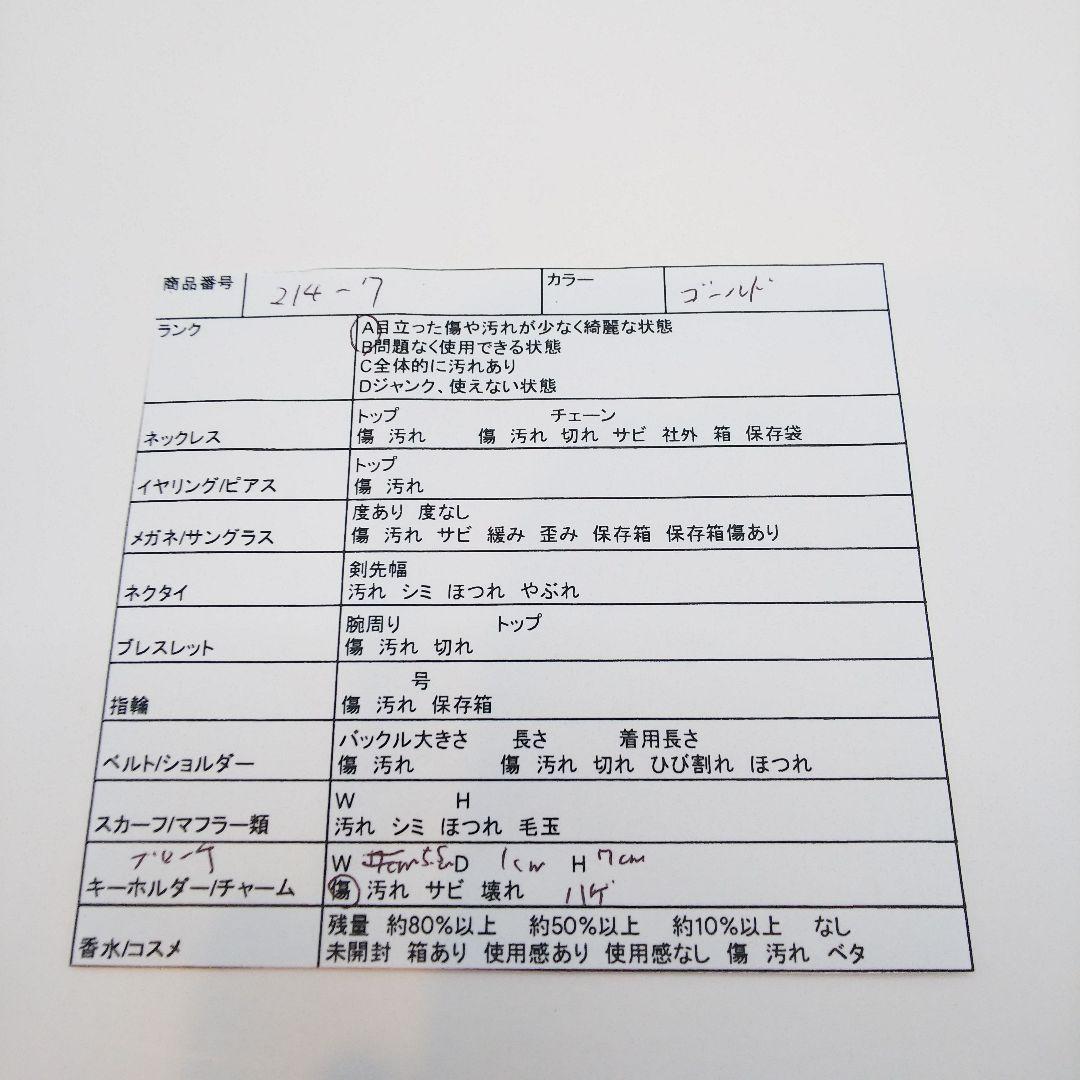 商品番号 214-7 カラー ゴールド
ランク
A目立った傷や汚れが少なく綺麗な状態
B問題なく使用できる状態
C全体的に汚れあり
Dジャンク、使えない状態
ネックレス
トップ チェーン
傷 汚れ 傷 汚れ 切れ サビ 社外 箱 保存袋
イヤリング/ピアス
トップ
傷 汚れ
メガネ/サングラス
度あり 度なし
傷 汚れ サビ 緩み 歪み 保存箱 保存箱傷あり
ネクタイ
剣先幅
汚れ シミ ほつれ やぶれ
ブレスレット
腕周り トップ
傷 汚れ 切れ
指輪
号
傷 汚れ 保存箱
ベルト/ショルダー
バックル大きさ 長さ 着用長さ
傷 汚れ 傷 汚れ 切れ ひび割れ ほつれ
スカーフ/マフラー類
W H
汚れ シミ ほつれ 毛玉
ブローチ
キーホルダー/チャーム
W D 1cm H 7cm
傷 汚れ サビ 壊れ ハゲ
香水/コスメ
残量 約80%以上 約50%以上 約10%以上 なし
未開封 箱あり 使用感あり 使用感なし 傷 汚れ ベタ